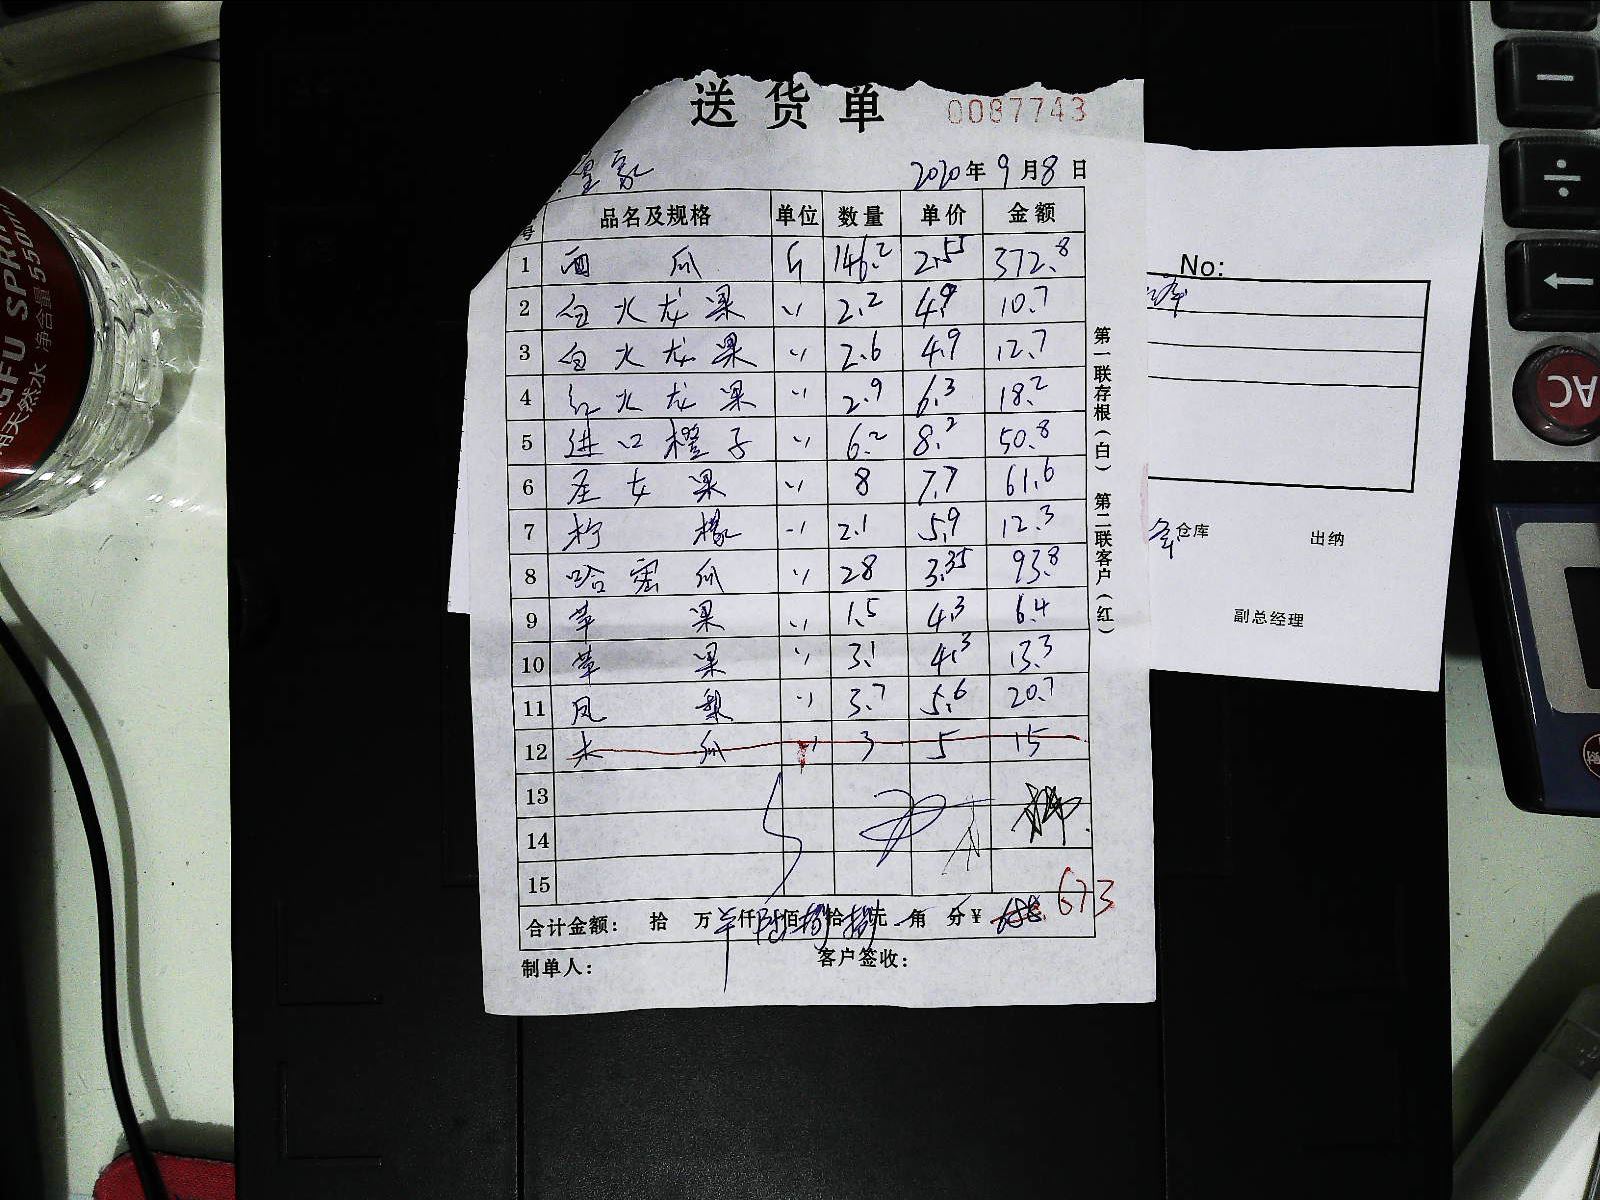 送货单 0087743
皇家 2020年9月8日
号 品名及规格 单位 数量 单价 金额
1 西瓜 斤 146.2 2.55 372.8
2 白火龙果 〃 2.2 4.9 10.7
3 白火龙果 〃 2.6 4.9 12.7
4 红火龙果 〃 2.9 6.3 18.2
5 进口橙子 〃 6.2 8.2 50.8
6 圣女果 〃 8 7.7 61.6
7 柠檬 〃 2.1 5.9 12.3
8 哈密瓜 〃 28 3.35 93.8
9 苹果 〃 1.5 4.3 6.4
10 苹果 〃 3.1 4.3 13.3
11 凤梨 〃 3.7 5.6 20.7
12 木瓜 〃 3 5 15
13
14
15
合计金额: 拾 万 仟 陆 佰 捌 拾 捌 元 角 分 ¥ 688. 673
制单人: 客户签收:
第一联存根(白) 第二联客户(红)
No:
仓库 出纳
副总经理
GFU SPRIN
天然水 净含量 550ml
AC